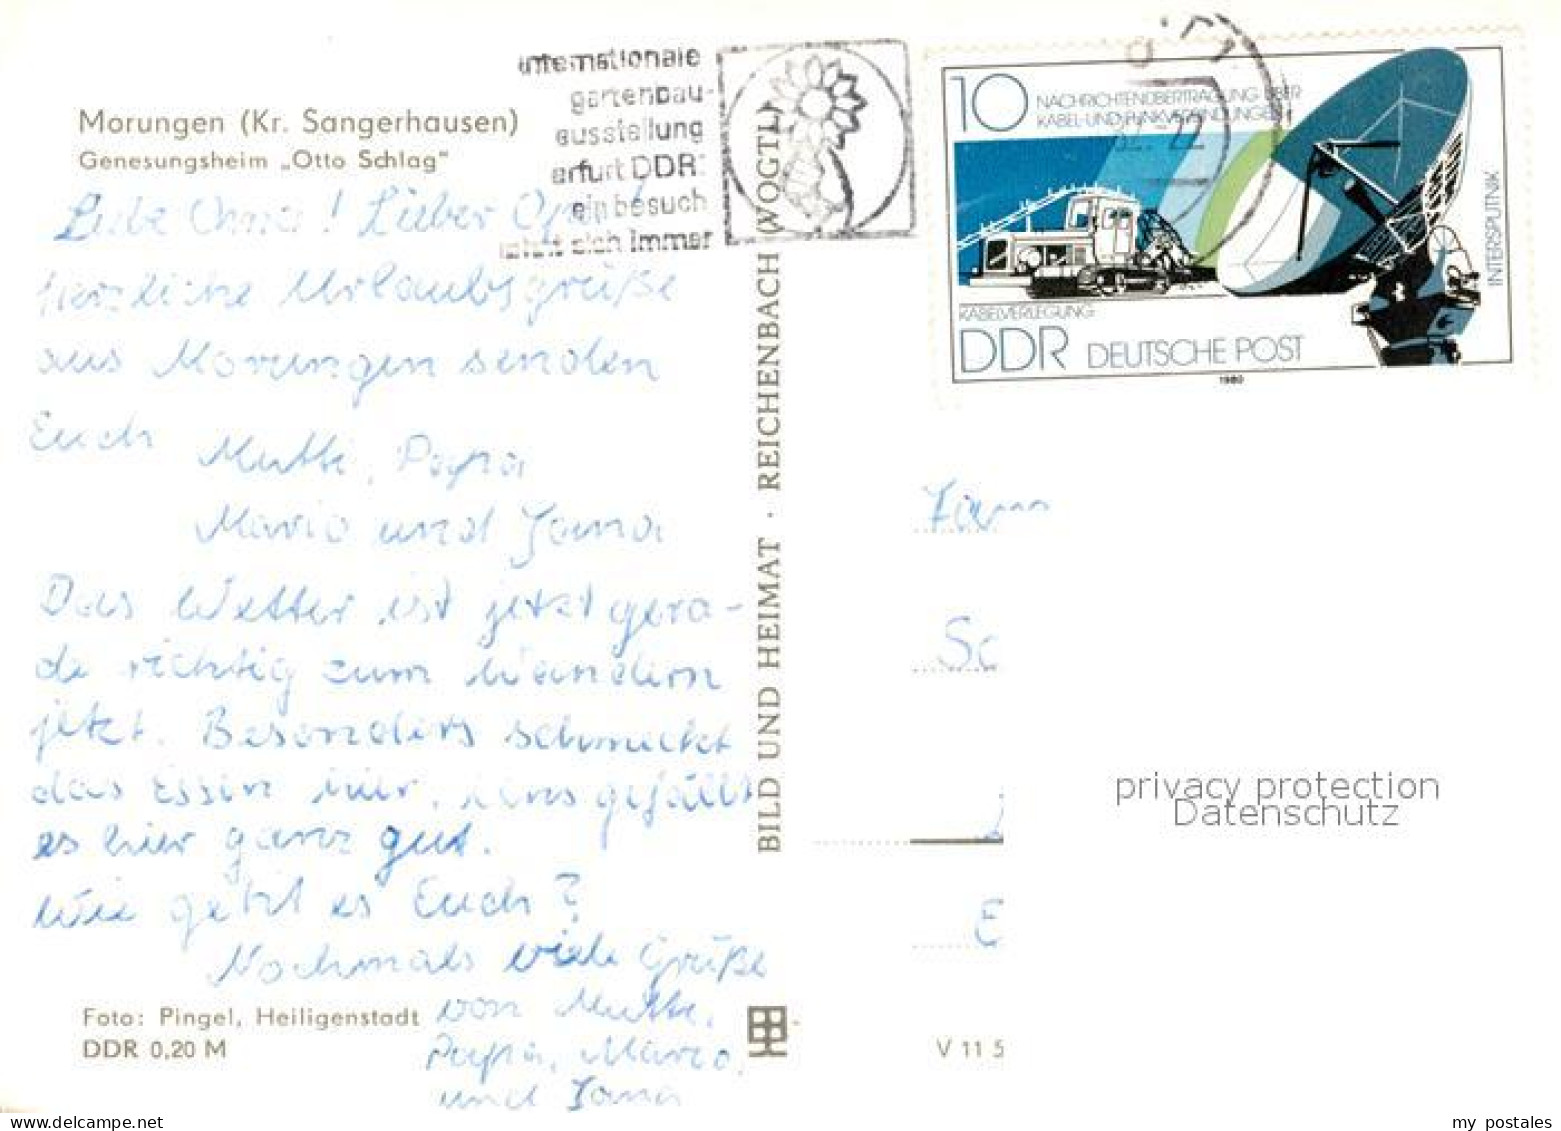 Morungen (Kr. Sangerhausen)
Genesungsheim „Otto Schlag"
Liebe Oma! Lieber Opa!
herzliche Urlaubsgrüße
aus Morungen senden
Euch
Mutti, Papa
Mario und Jana
Das Wetter ist jetzt gera-
de richtig zum Wandern
jetzt. Besonders schmeckt
das Essen hier, uns gefällt
es hier ganz gut.
Wie geht es Euch?
Nochmals viele Grüße
von Mutti,
Papa, Mario,
und Jana
Foto: Pingel, Heiligenstadt
DDR 0,20 M
BILD UND HEIMAT · REICHENBACH (VOGTL)
internationale
gartenbau-
ausstellung
erfurt DDR:
ein besuch
lohnt sich immer
10
NACHRICHTENÜBERTRAGUNG ÜBER
KABEL-UND FUNKVERBINDUNGEN
INTERSPUTNIK
KABELVERLEGUNG
DDR DEUTSCHE POST
1980
82.-22
Fam
Sc
E
V 11 5
privacy protection
Datenschutz
my postales